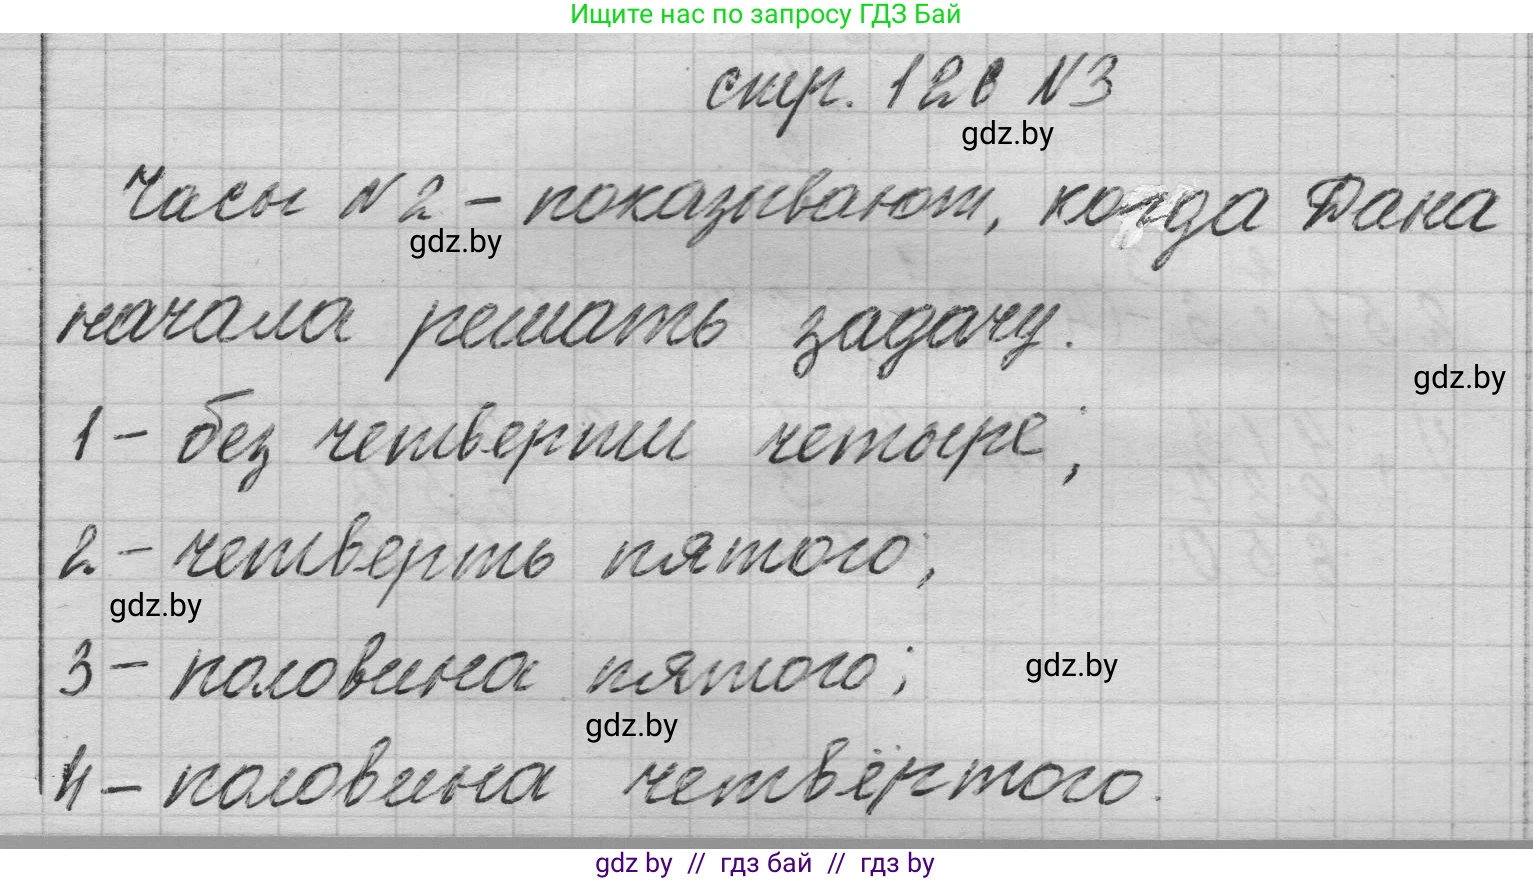 Ищите нас по запросу ГДЗ Бай
стр. 126 №3
gdz.by
Часы №2 – показывают, когда Дана
gdz.by
начала решать задачу.
gdz.by
1 – без четверти четыре;
2 – четверть пятого;
gdz.by
3 – половина пятого;
gdz.by
gdz.by
4 – половина четвёртого.
gdz by // гдз бай // гдз by